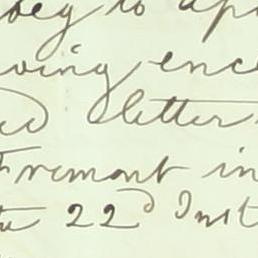 beg to apo
oving enc
ed letter
Fremont in
the 22d Inst